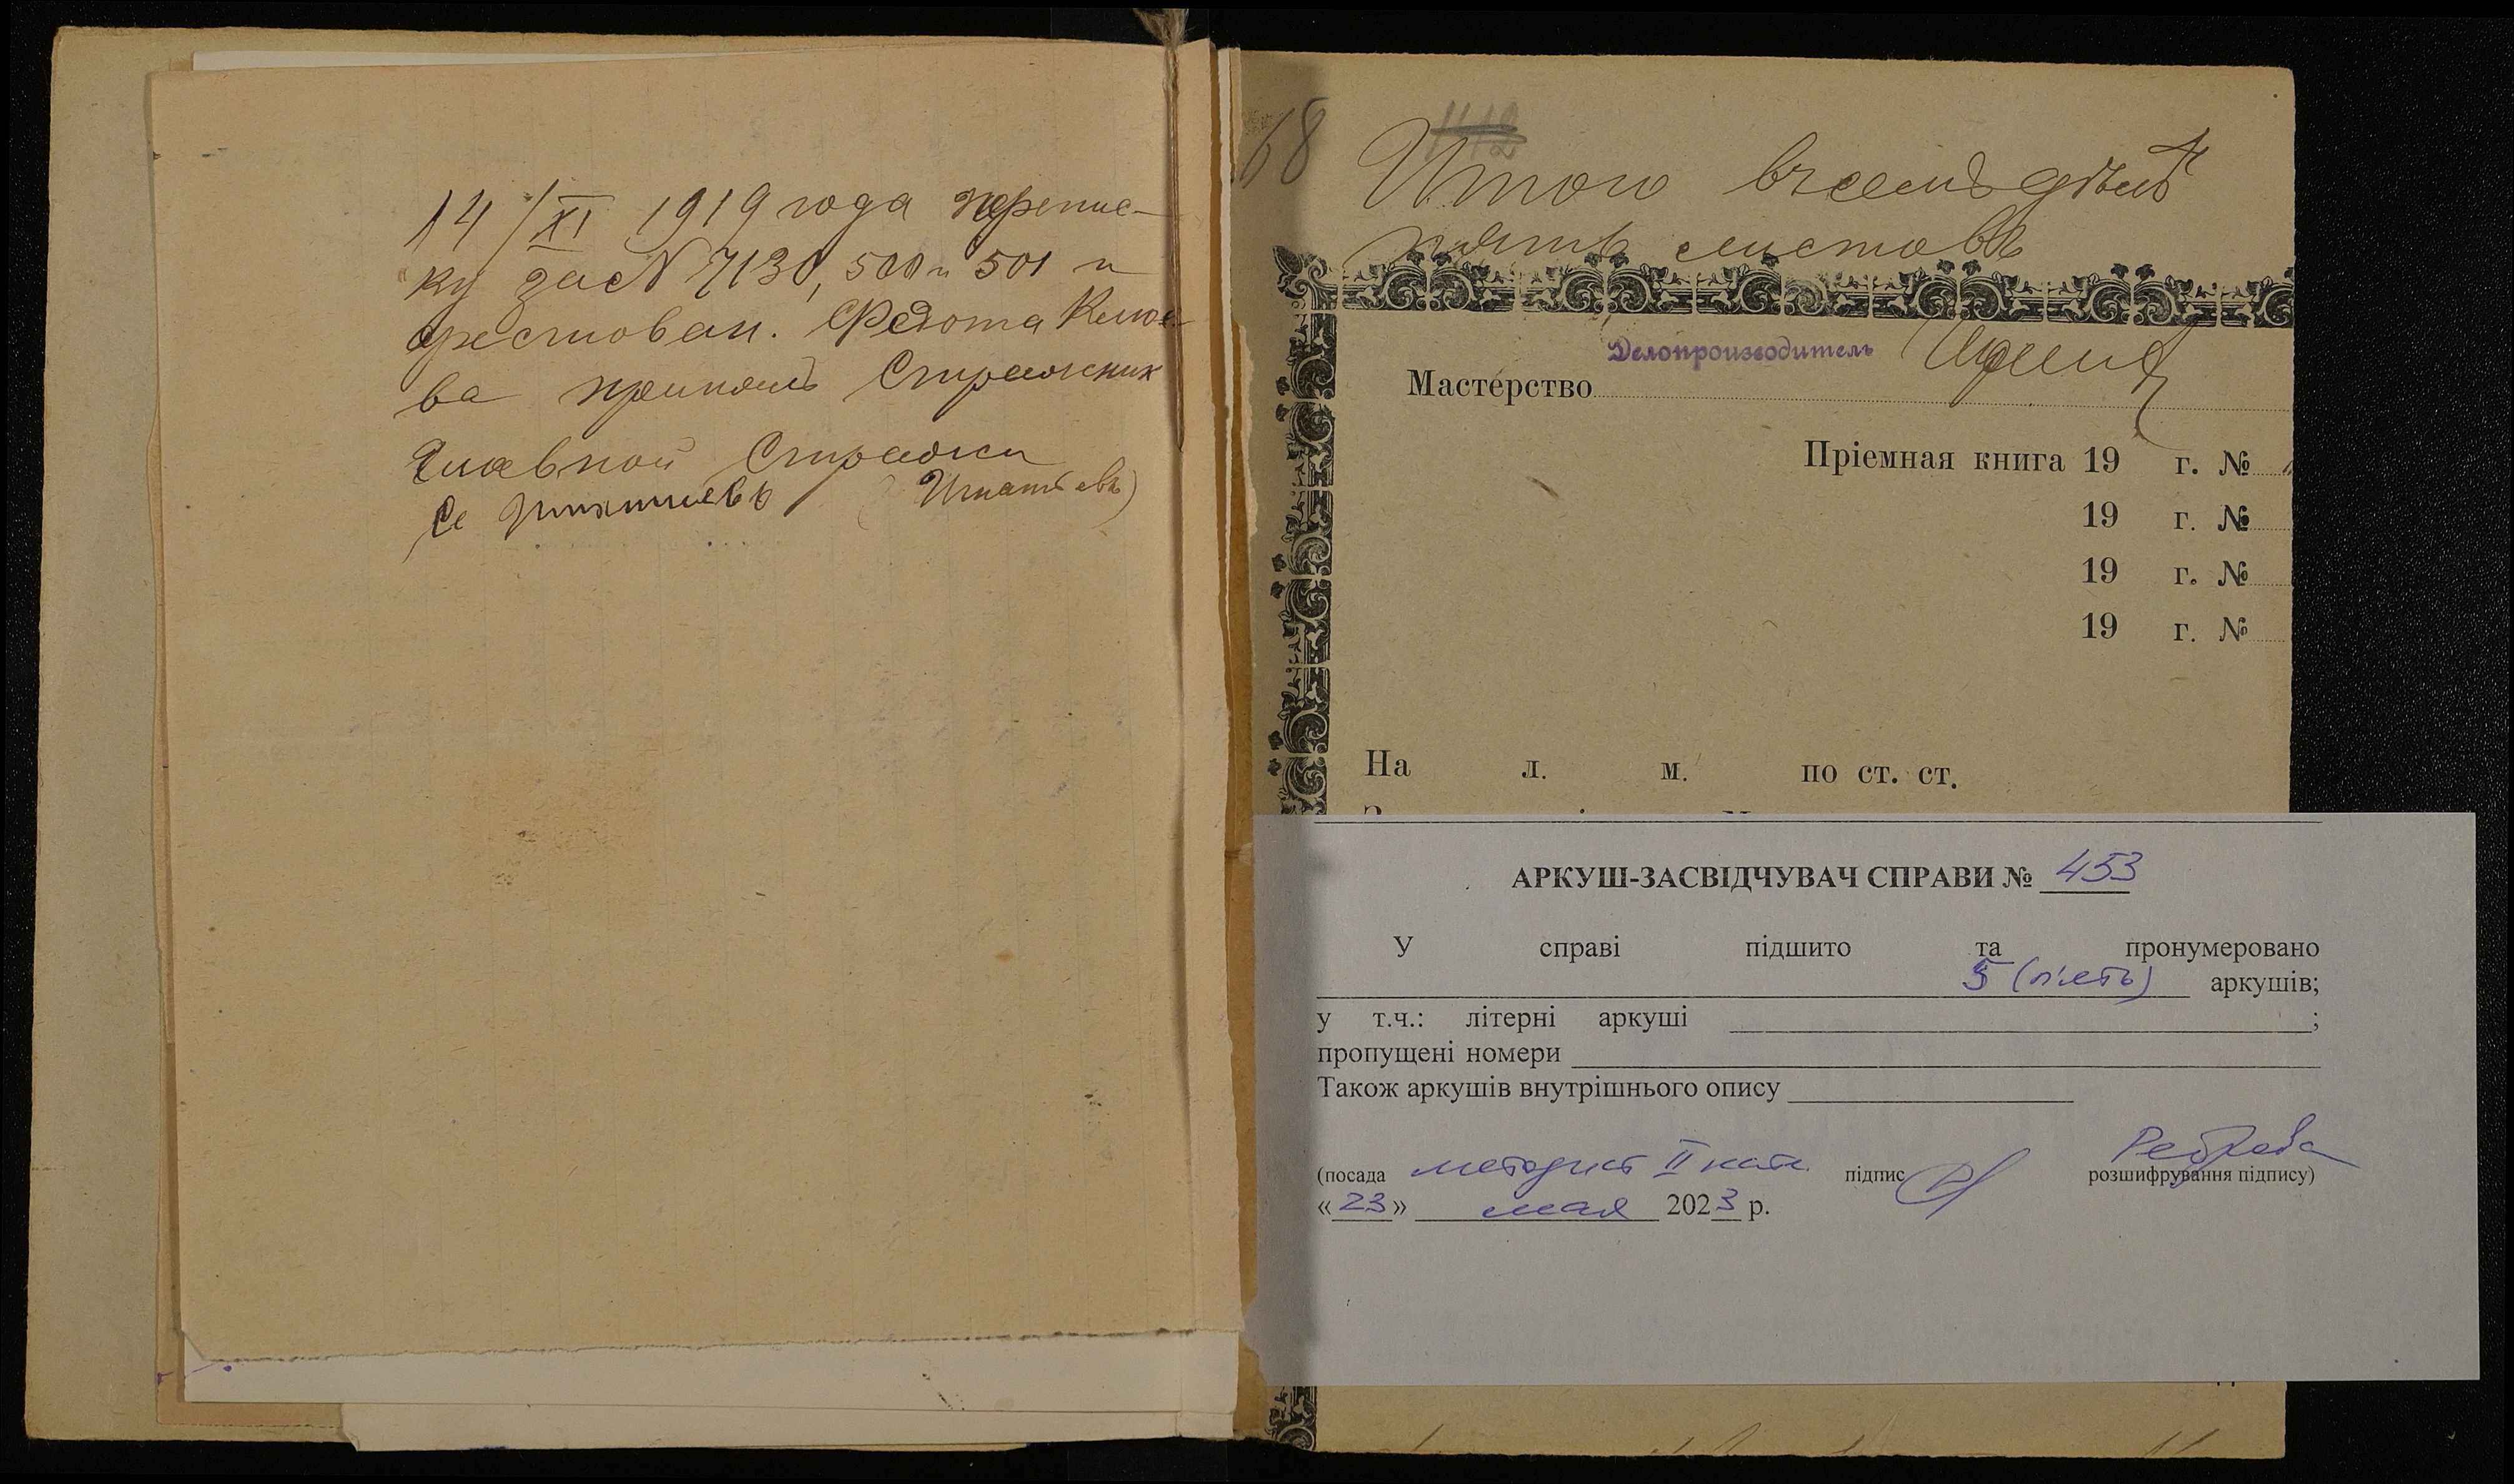 14/XI 1919 года перепис-
ку за № 7130, 500 и 501 и
арестован. Федота Клюе-
ва принялъ Стражник
Главной Стражи
Игнатиевъ (Игнатьевъ)
68
Итого въ семъ дѣлѣ
пять листовъ
Делопроизводитель
Мастерство
Пріемная книга 19 г. №
19 г. №
19 г. №
19 г. №
На л. м. по ст. ст.
АРКУШ-ЗАСВІДЧУВАЧ СПРАВИ № 453
У справі підшито та пронумеровано
5 (п'ять) аркушів;
у т.ч.: літерні аркуші ;
пропущені номери
Також аркушів внутрішнього опису
(посада методист II кат. підпис розшифрування підпису)
«23» мая 2023 р.